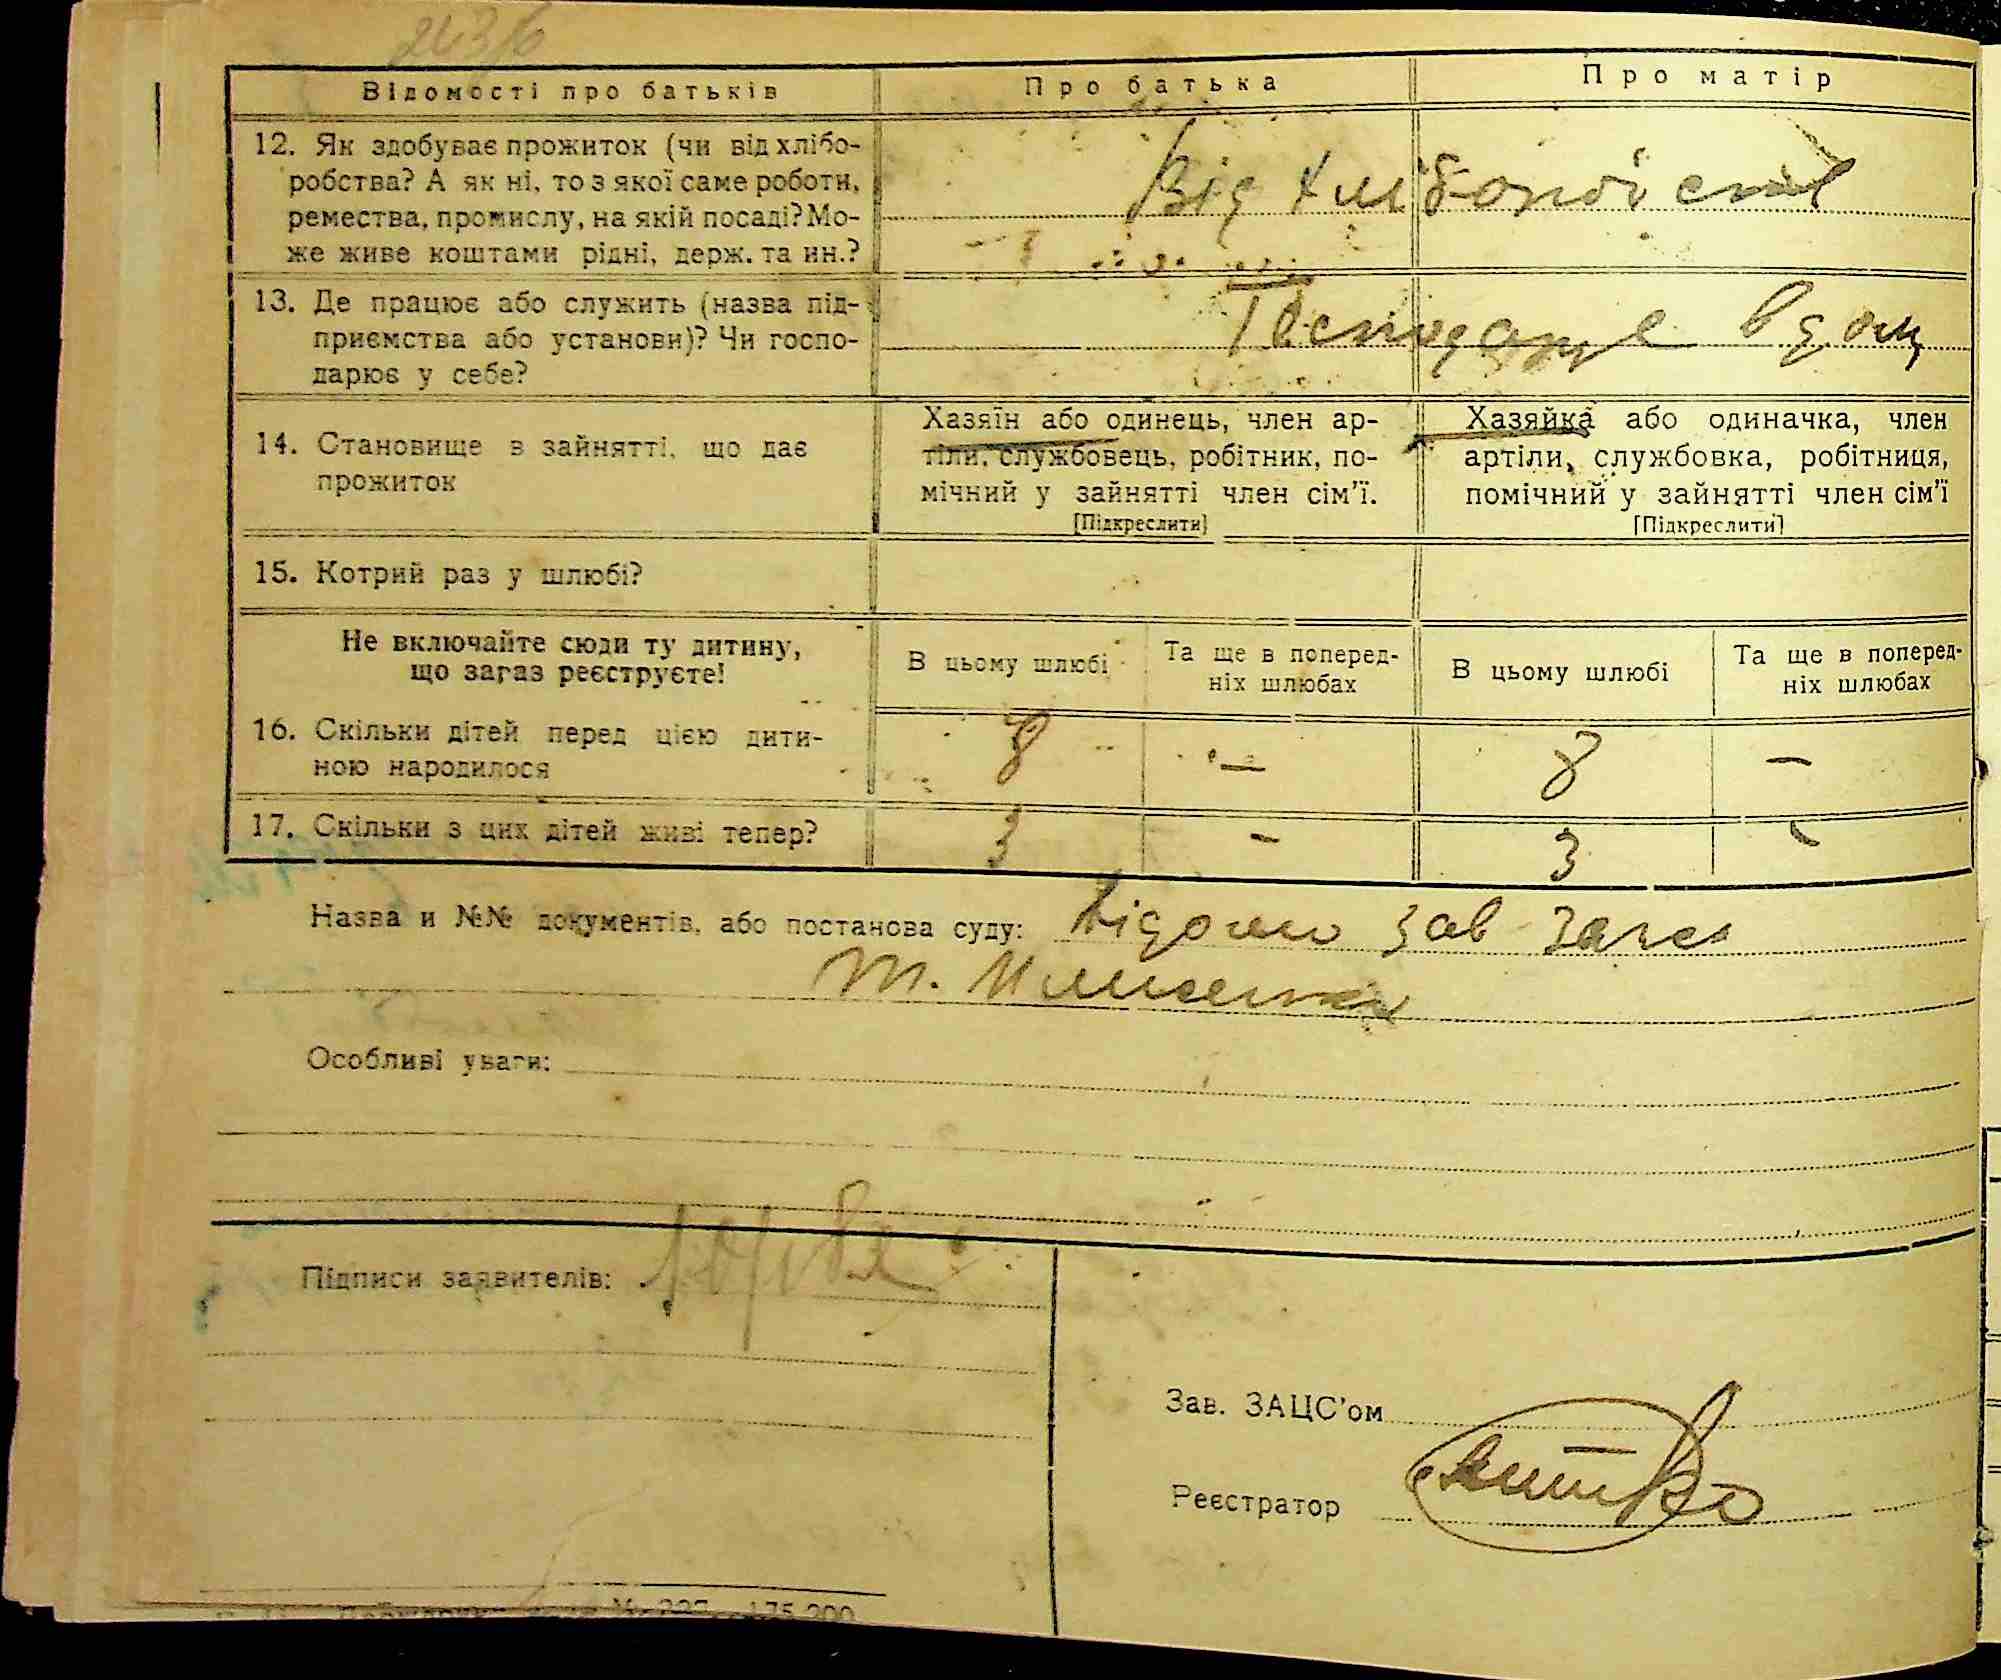 Відомості про батьків Про батька Про матір
12. Як здобуває прожиток (чи від хлібо-
робства? А як ні, то з якої саме роботи,
ремества, промислу, на якій посаді? Мо-
же живе коштами рідні, держ. та ин.?
Від
13. Де працює або служить (назва під-
приємства або установи)? Чи госпо-
дарює у себе?
14. Становище в зайнятті, що дає
прожиток
Хазяїн або одинець, член ар-
тіли, службовець, робітник, по-
мічний у зайнятті член сім'ї.
[Підкреслити]
Хазяйка або одиначка, член
артіли, службовка, робітниця,
помічний у зайнятті член сім'ї
[Підкреслити]
15. Котрий раз у шлюбі?
Не включайте сюди ту дитину,
що зараз реєструєте!
В цьому шлюбі
Та ще в поперед-
ніх шлюбах
В цьому шлюбі
Та ще в поперед-
ніх шлюбах
16. Скільки дітей перед цією дити-
ною народилося
8 — 8 —
17. Скільки з цих дітей живі тепер?
3 - 3 -
Назва и №№ документів, або постанова суду: Відомо зав загса
т.
Особливі уваги:
Підписи заявителів:
Зав. ЗАЦС'ом
Реєстратор